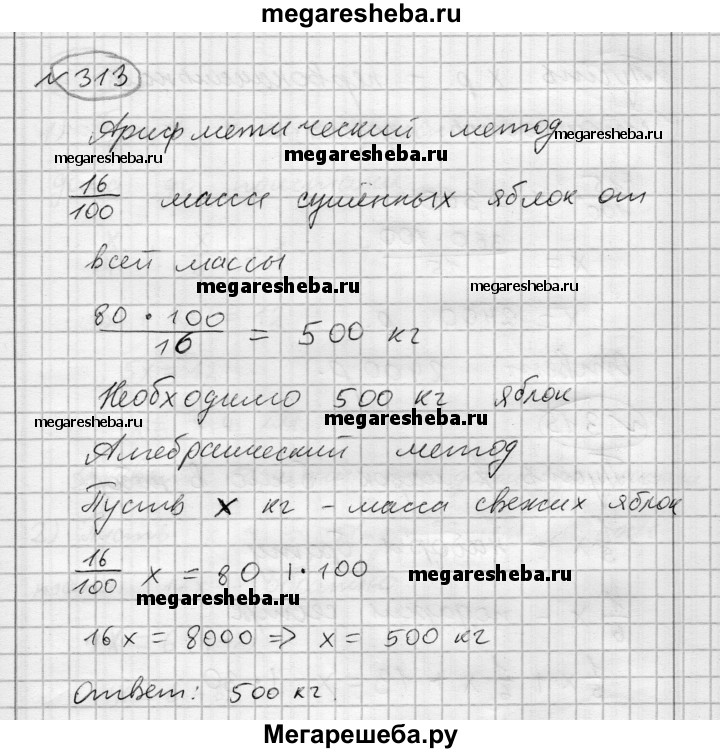 megaresheba.ru
№313
Арифметический метод
megaresheba.ru
megaresheba.ru
megaresheba.ru
16/100 масса сушённых яблок от
всей массы
megaresheba.ru
megaresheba.ru
80 · 100 / 16 = 500 кг
Необходимо 500 кг яблок
megaresheba.ru
megaresheba.ru
Алгебраический метод
Пусть x кг - масса свежих яблок
16/100 x = 80 |·100
megaresheba.ru
megaresheba.ru
16x = 8000 => x = 500 кг
Ответ: 500 кг.
Мегарешеба.ру